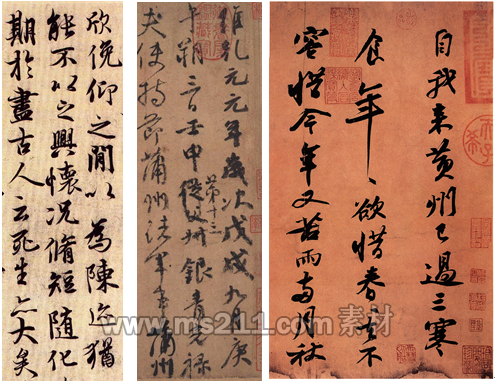 自我来黄州已過三寒
食年、欲惜春去不
容惜今年又苦雨兩月秋
維乾元元年歲次戊戌九月庚
午朔三日壬申第十三叔銀青光祿
夫使持節蒲州諸軍事蒲州
欣俛仰之閒以為陳迹猶
能不以之興懷況脩短隨化
期於盡古人云死生亦大矣
www.ms211.com 素材